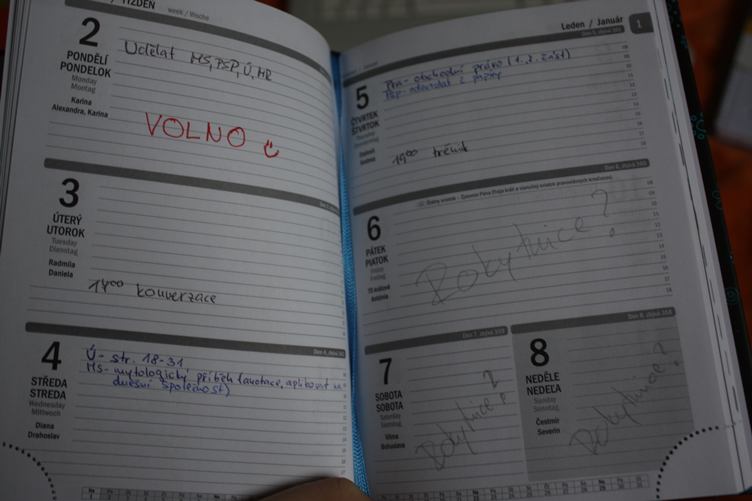 TÝŽDEŇ week / Woche
2
PONDĚLÍ
PONDELOK
Monday
Montag
Karina
Alexandra, Karina
Udělat MS, PSP, Ú, HR
VOLNO
3
ÚTERÝ
UTOROK
Tuesday
Dienstag
Radmila
Daniela
14⁰⁰ konverzace
4
STŘEDA
STREDA
Wednesday
Mittwoch
Diana
Drahoslav
Ú - str. 18-31
MS - mytologický příběh (anotace, aplikovat na
dnešní společnost)
Leden / Január
1
5
ČTVRTEK
ŠTVRTOK
Prn - obchodní právo (1. 2. část)
Psp - odevzdat 2 papíry
19⁰⁰
6
PÁTEK
PIATOK
Friday
Freitag
Tři králové
Antónia
Rokytnice?
7
SOBOTA
SOBOTA
Saturday
Samstag
Vilma
Bohuslava
Rokytnice?
8
NEDĚLE
NEDEĽA
Sunday
Sonntag
Čestmír
Severín
Rokytnice?